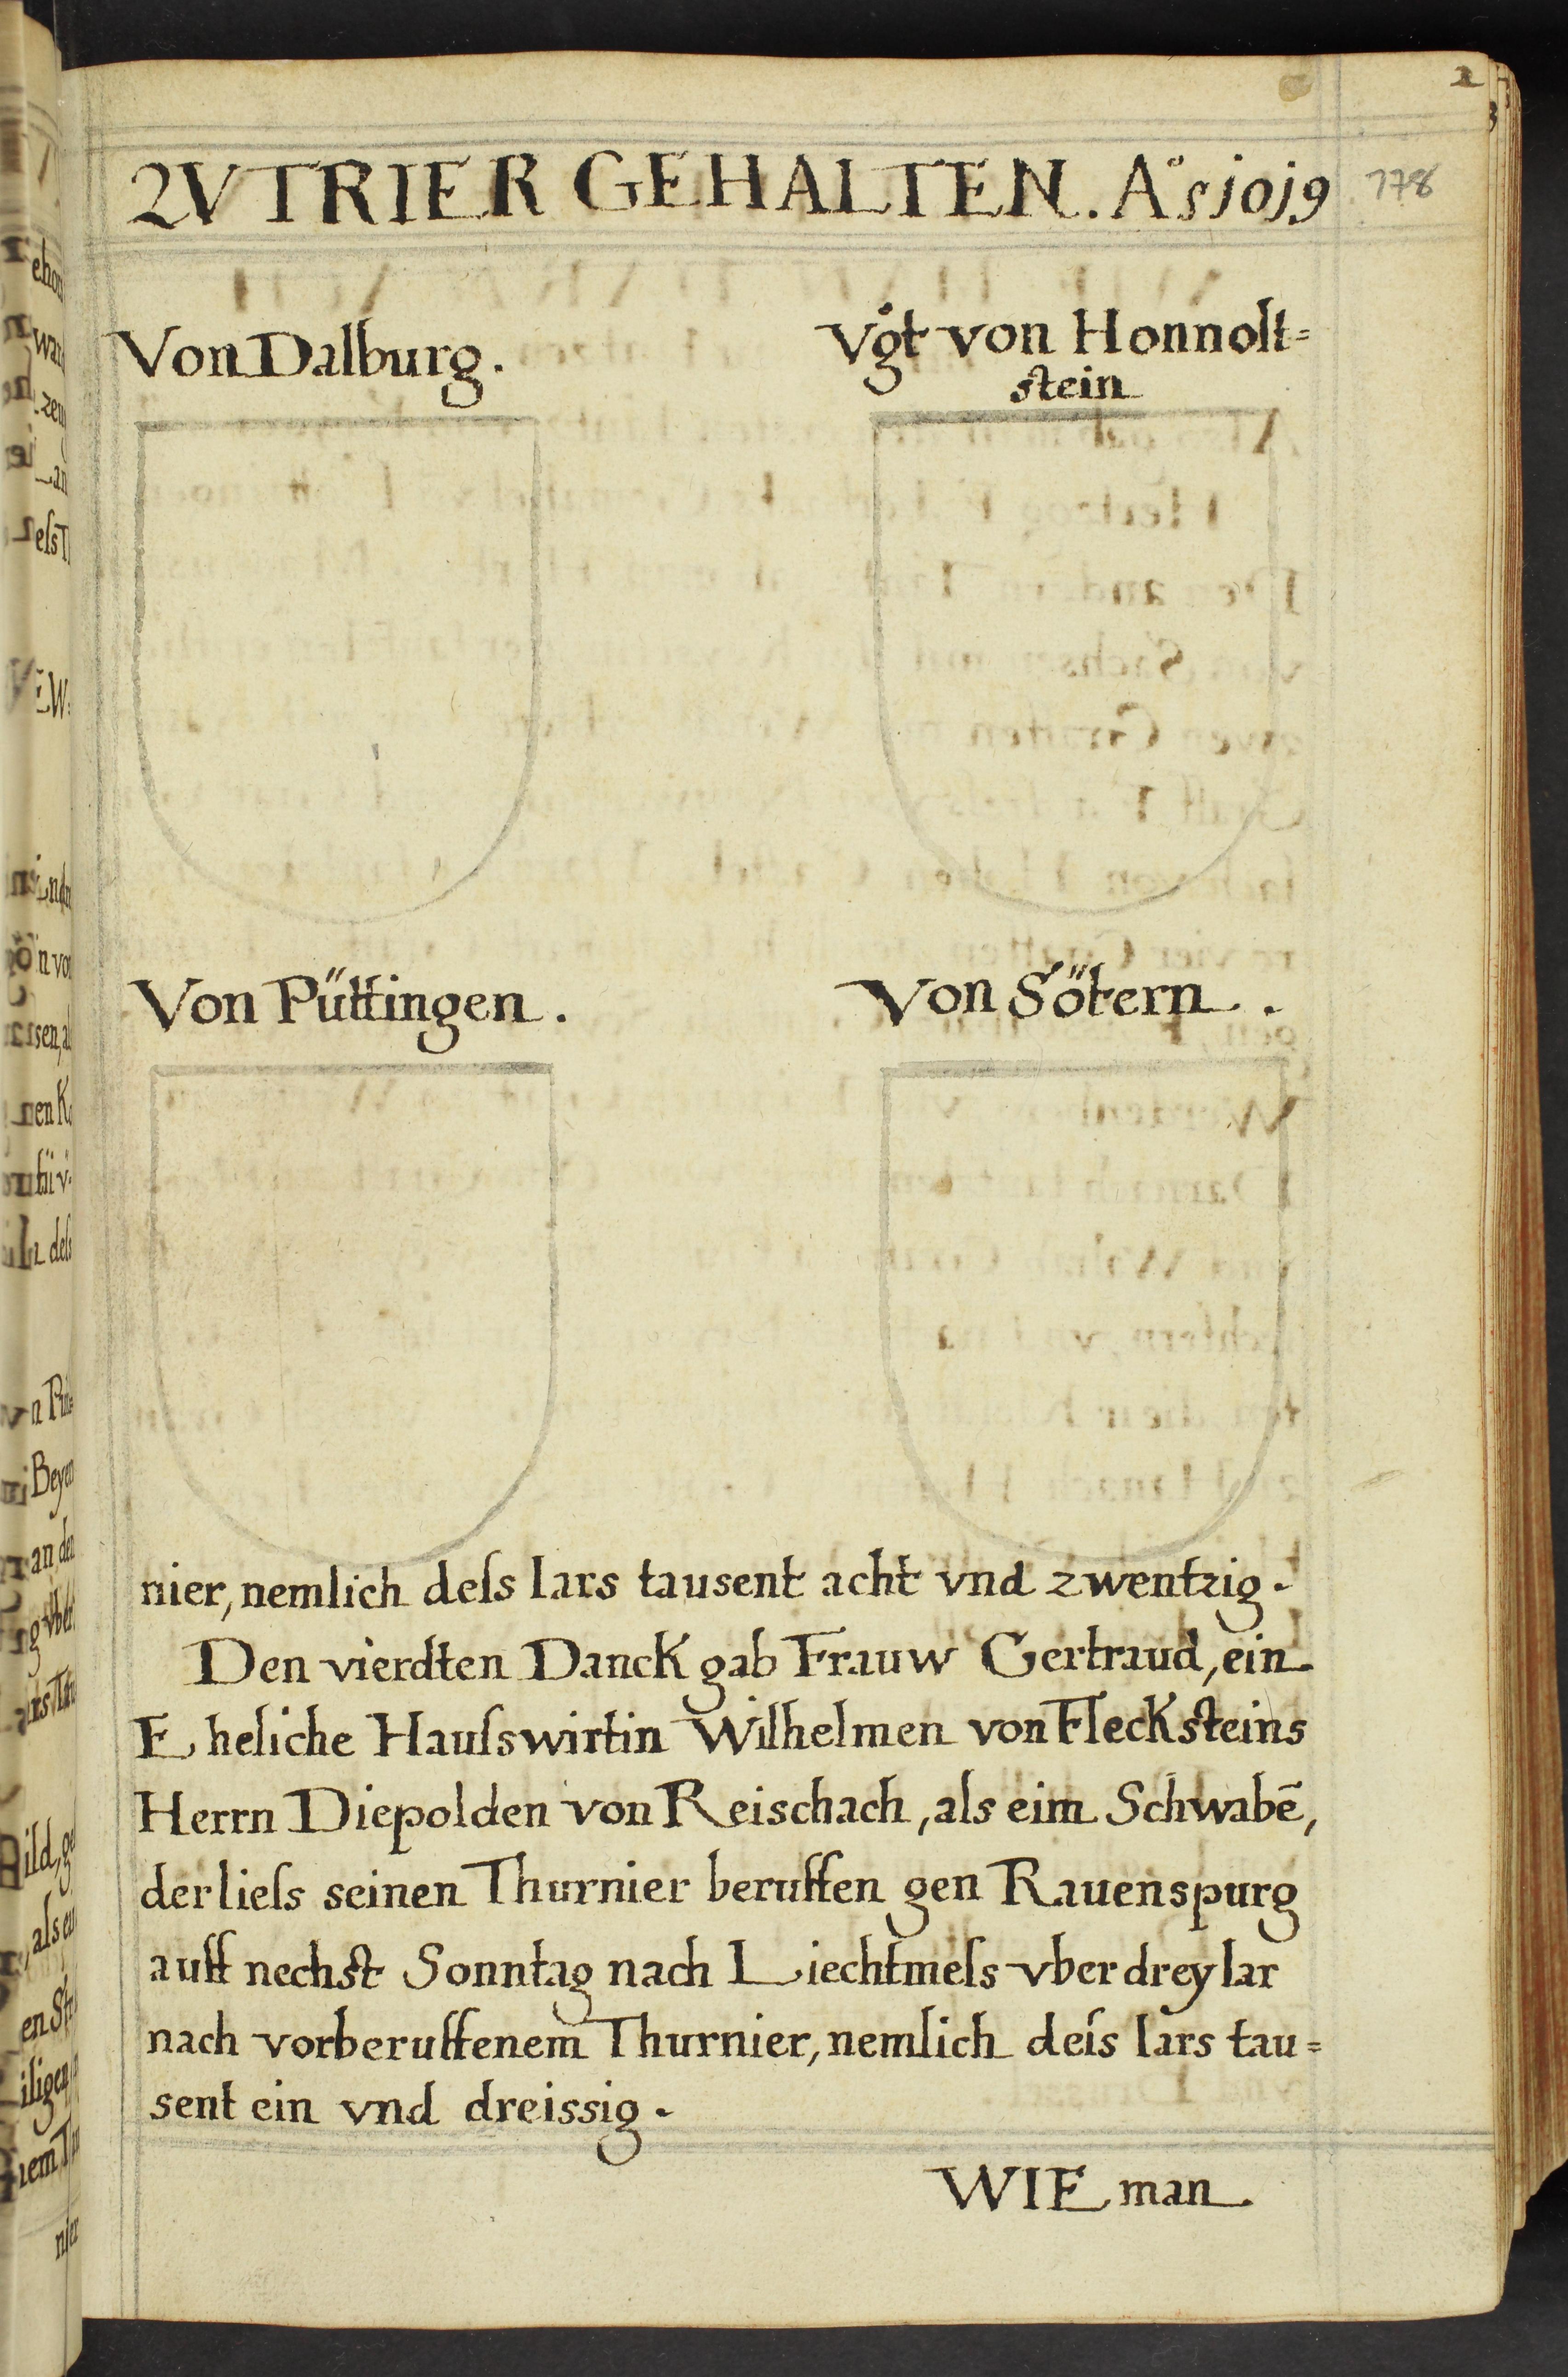 2
ZV TRIER GEHALTEN. A°s j0j9 778
Von Dalburg.
Vögt von Honnolt=
stein
Von Püttingen.
Von Sötern.
nier, nemlich deſs Iars tausent acht vnd zwentzig.
Den vierdten Danck gab Frauw Gertraud, ein
Eheliche Hauſswirtin Wilhelmen von Flecksteins
Herrn Diepolden von Reischach, als eim Schwabē,
der lieſs seinen Thurnier beruffen gen Rauenspurg
auff nechst Sonntag nach Liechtmeſs vber drey Iar
nach vorberuffenem Thurnier, nemlich deſs Iars tau=
sent ein vnd dreissig.
WIE man